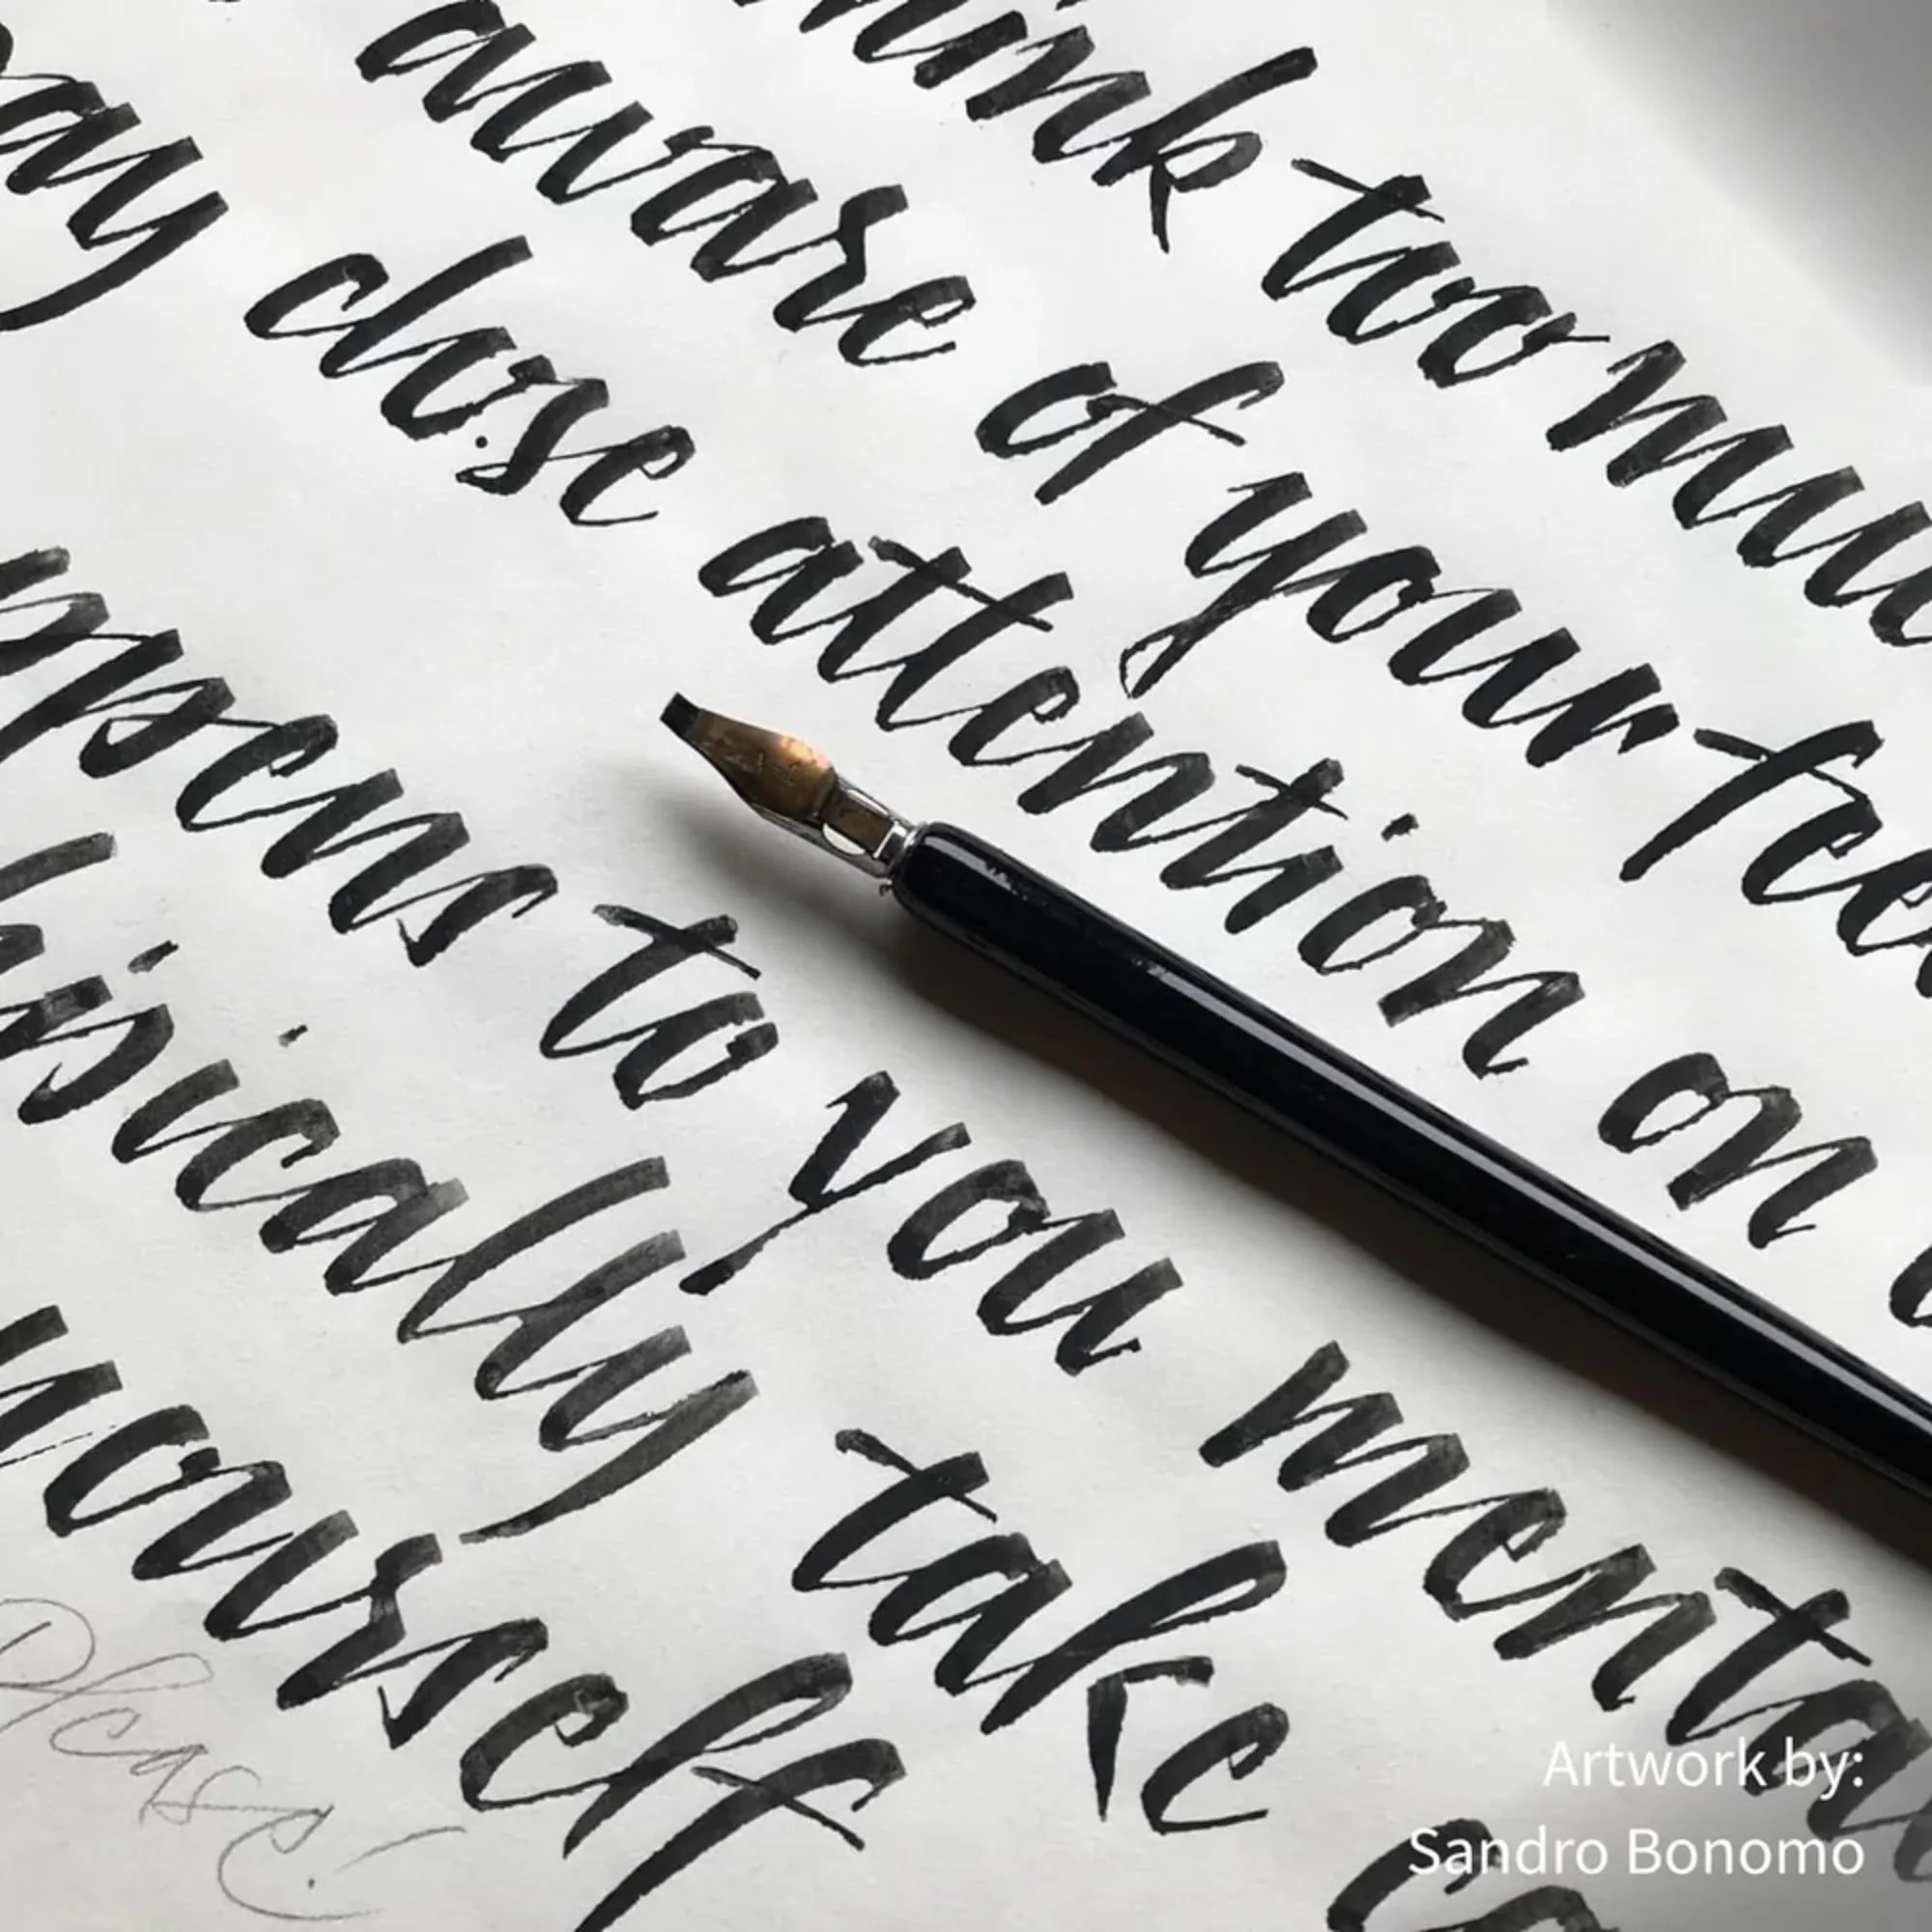 hink too mu
aware of your fee
ay close attention on
ppens to you menta
hisically take ca
yourself
Please!
Artwork by:
Sandro Bonomo